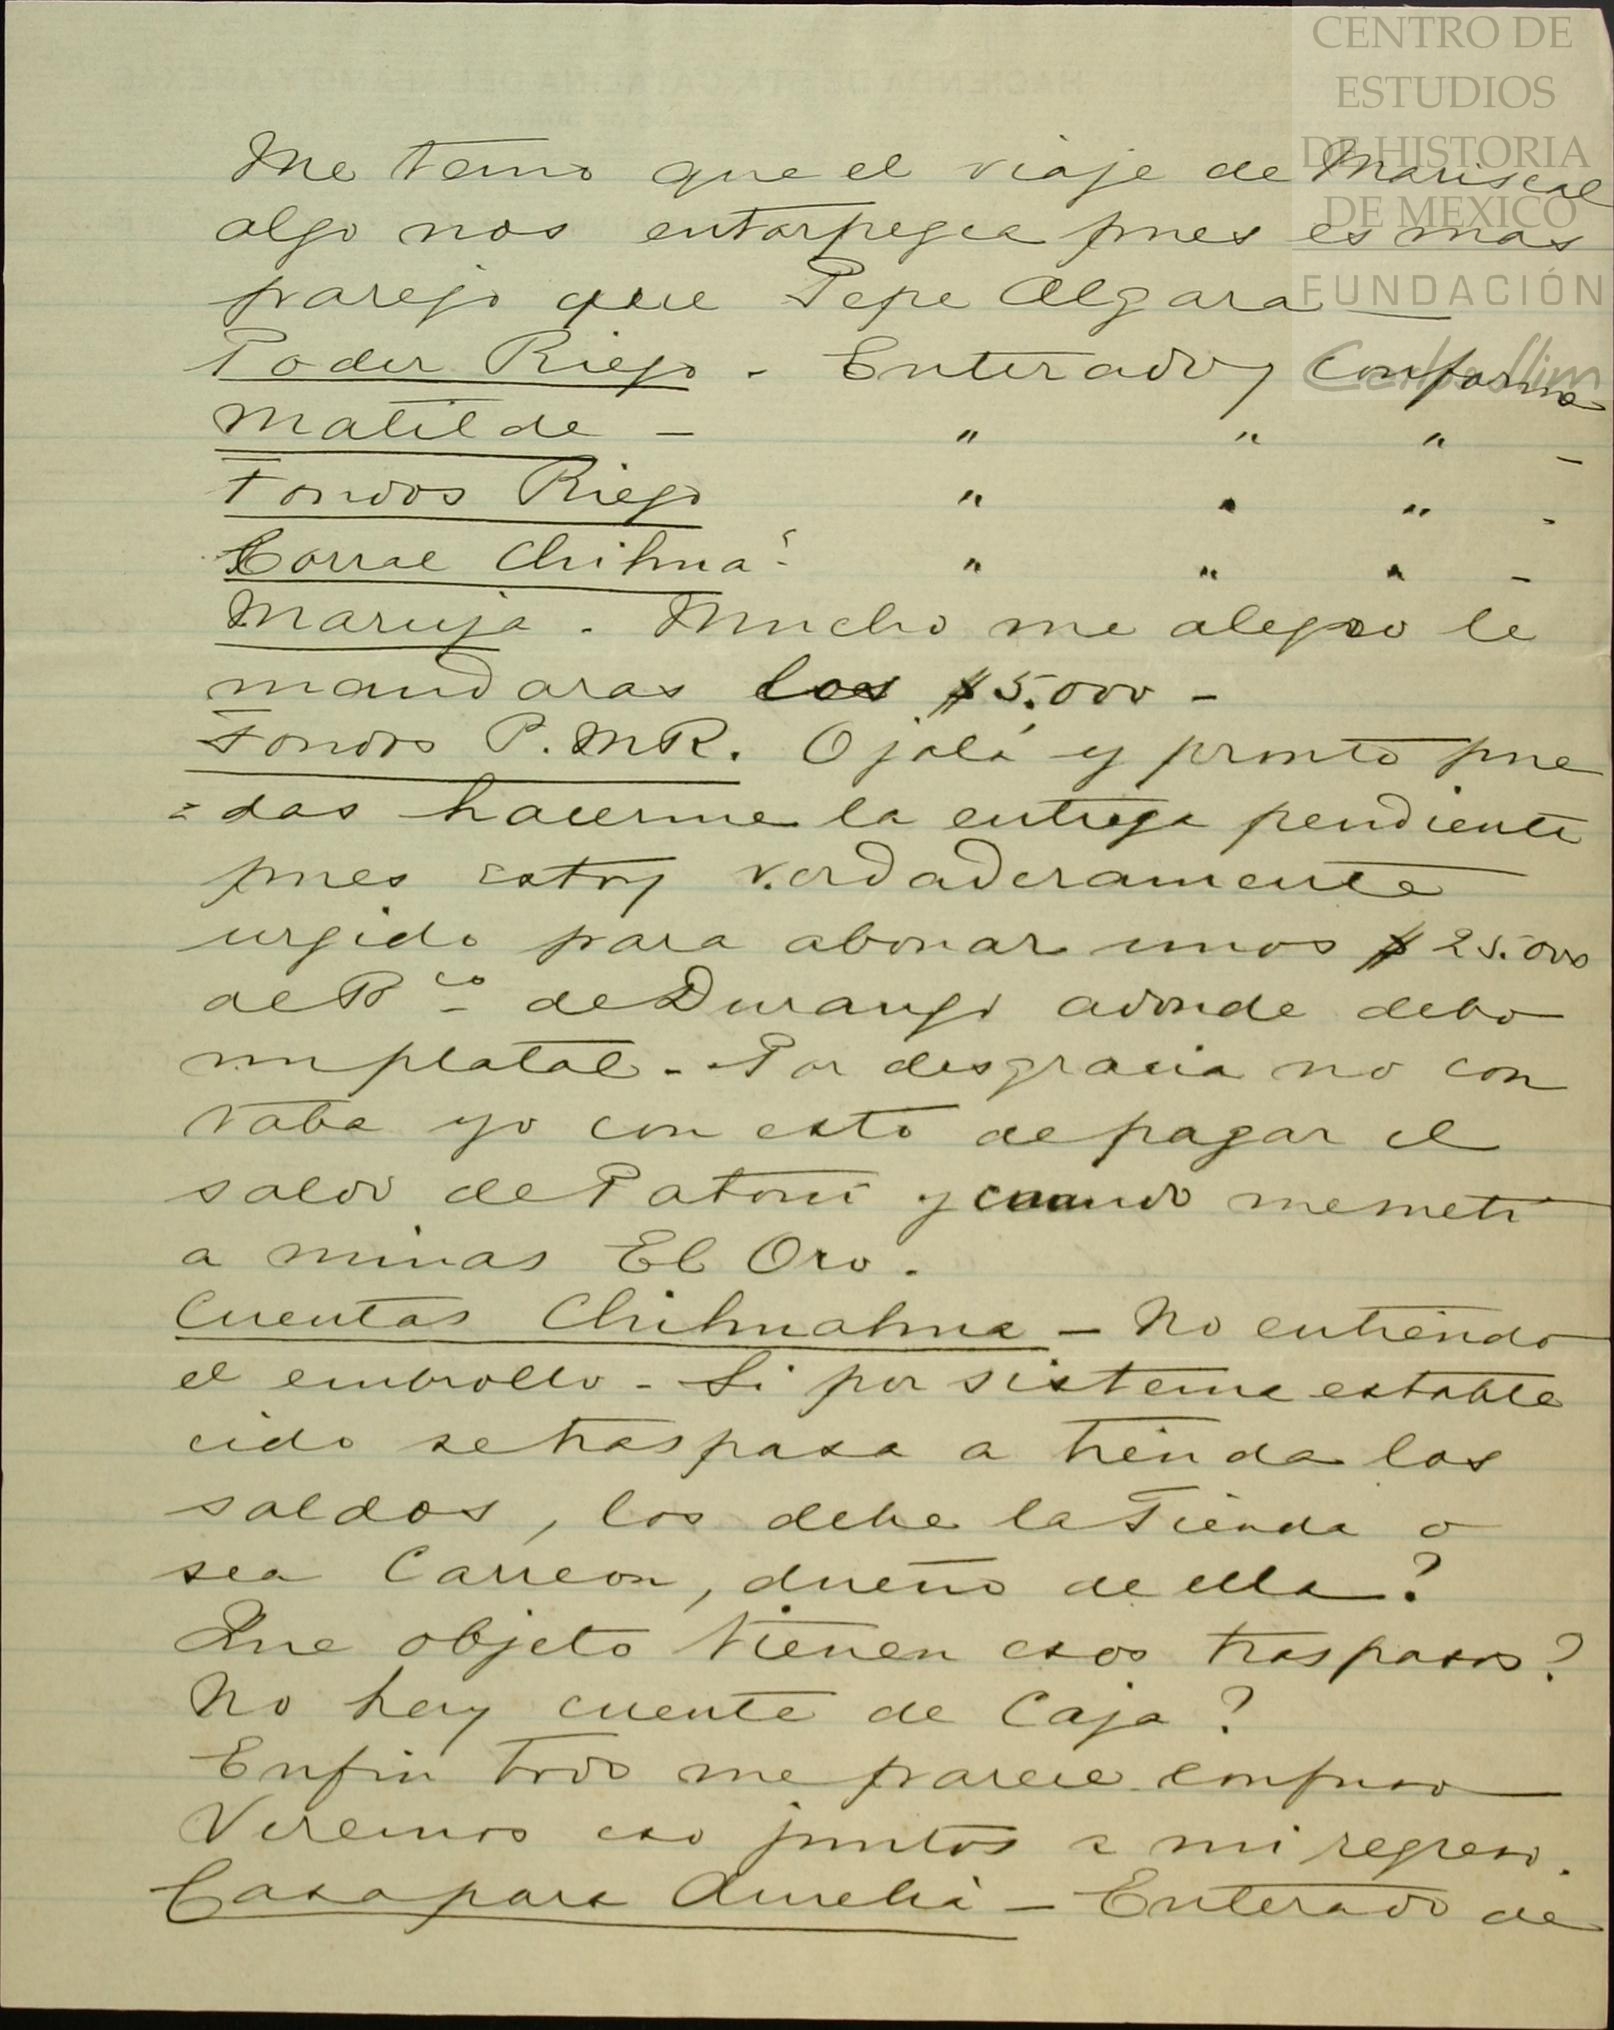 CENTRO DE
ESTUDIOS
DE HISTORIA
DE MEXICO
FUNDACIÓN
Carlos Slim
Me temo que el viaje de Mariscal
algo nos entorpezca pues es mas
parejo que Pepe Algara
Poder Riego - Enterado y conforme
Matilde - " " " -
Fondos Riego " " " -
Corral Chihuaˢ - " " " -
Maruja - Mucho me alegro le
mandaras los $5.000 -
Fondos P.MR. Ojalá y pronto pue
=das hacerme la entrega pendiente
pues estoy verdaderamente
urgido para abonar unos $25.000
al Bco de Durango adonde debo
un platal - Por desgracia no con
taba yo con esto de pagar el
saldo de Patoni y cuando me metí
a minas El Oro.
Cuentas Chihuahua - No entiendo
el embrollo - Si por sistema estable
cido se traspasa a tienda los
saldos, los debe la Tienda o
sea Carreon, dueño de ella?
Que objeto tienen esos traspasos?
No hay cuenta de Caja?
Enfin todo me parece confuso
Veremos eso juntos a mi regreso.
Casa para Amelia - Enterado de